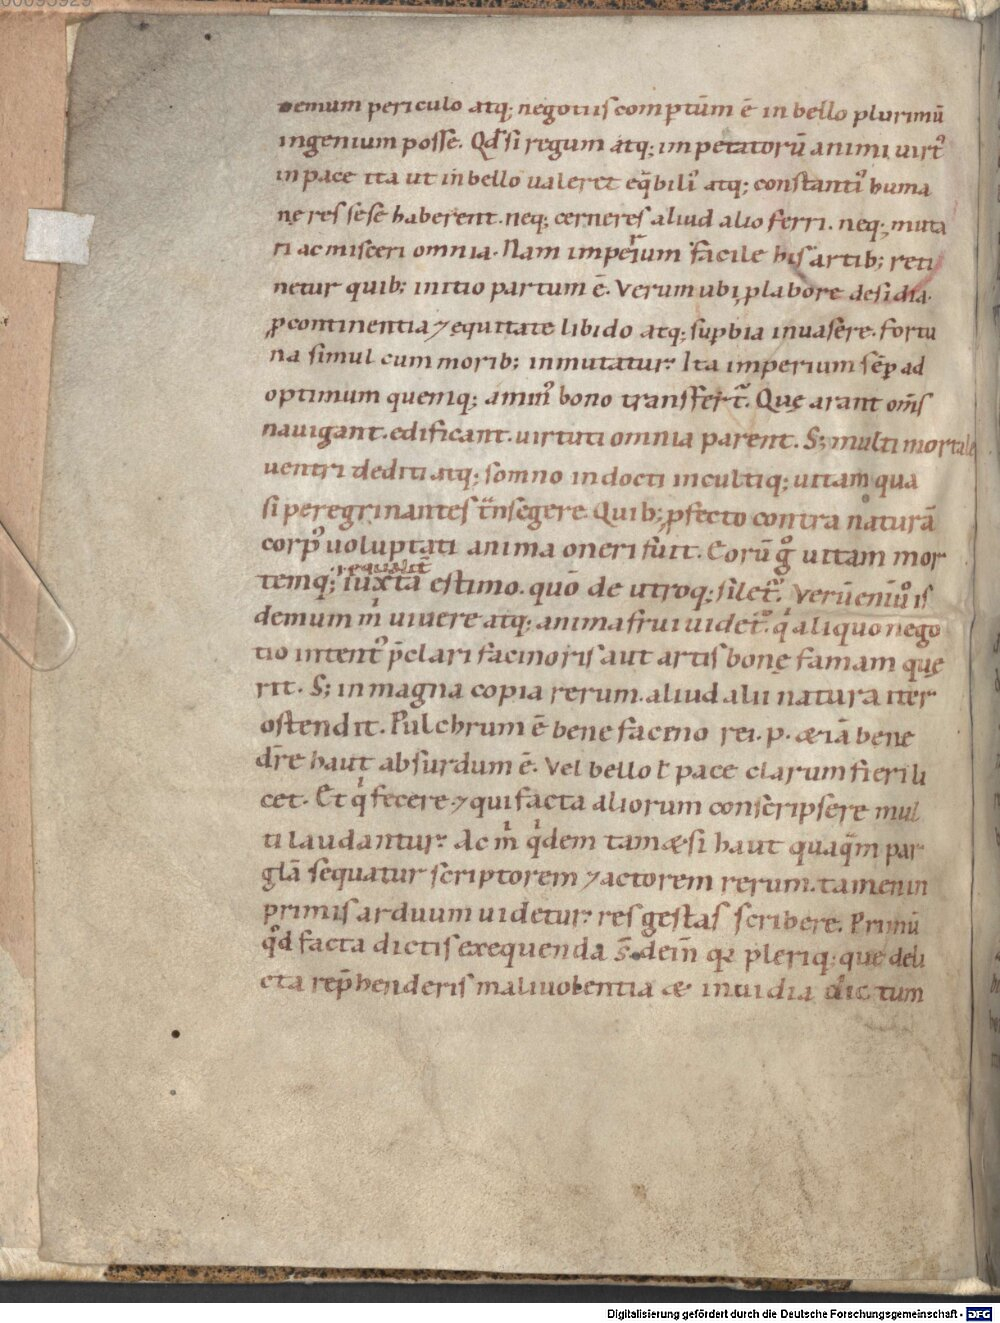 00095929
demum periculo atq; negotiis comptūm ē in bello plurimū
ingenium posse. Qđ si regum atq; impetatorū animi uirt᷒
in pace ita ut in bello ualeret eq̄bili᷒ atq; constanti᷒ huma
nę res sese haberent. neq; cerneres aliud alio ferri. neq; muta
ri ac misceri omnia. Nam imperium facile his artib; reti
netur quib; initio partum ē. Verum ubi ꝓ labore desidia.
ꝓ continentia ⁊ equitate libido atq; supbia inuasere. fortu
na simul cum morib; inmutatur. Ita imperium sēp ad
optimum quemq; a min᷒ bono transfert̄. Quę arant om̄s
nauigant. edificant. uirtuti omnia parent. S; multi mortale
uentri dediti atq; somno indocti incultiq; uitam qua
si peregrinantes t̄nsegere. Quib; ꝓfecto contra naturā
corp᷒ uoluptati anima oneri fuit. Eorū gͦ uitam mor
temq; iuxta estimo. quō de utroq; silet᷒. Verūeniūͦ is
demum m̍ uiuere atq; anima frui uidet᷒. q̍ aliquo nego
tio intent᷒ p̄clari facinoris aut artis bonę famam quę
rit. S; in magna copia rerum. aliud alii natura iter
ostendit. Pulchrum ē bene facino rei. p. & iā bene
dr̄e haut absurdum ē. Vel bello ł pace clarum fieri li
cet. Et q̍ fecere ⁊ qui facta aliorum conscripsere mul
ti laudantur. Ac m̍ q̍dem tam&si haut quaq̄m par
glā sequatur scriptorem ⁊ actorem rerum. tamen in
primis arduum uidetur. res gestas scribere. Primū
qͦd facta dictis exequenda s̄. dein̄ qꝛ pleriq; que deli
cta rep̄henderis maliuolentia & inuidia dictum
Digitalisierung gefördert durch die Deutsche Forschungsgemeinschaft - DFG